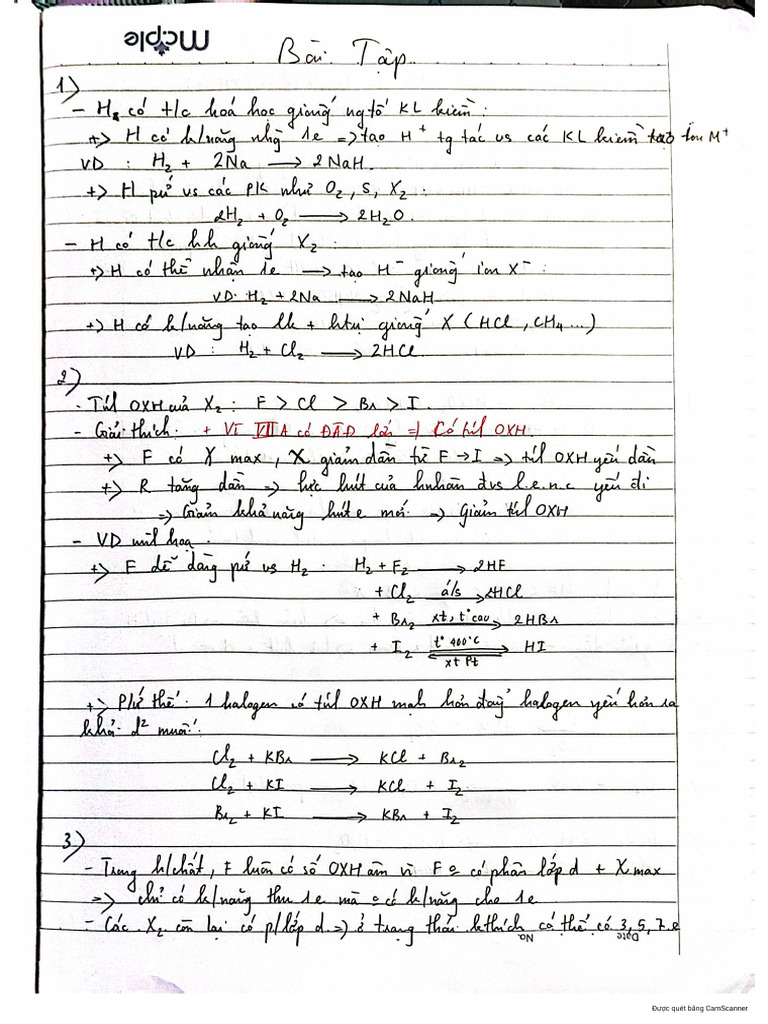 Maple
Bài Tập
1)
- H₂ có t/c hoá học giống ng tố KL kiềm :
+> H có k/năng nhg 1e => tạo H⁺ tg tác vs các KL kiềm tạo ion M⁺
VD : H₂ + 2Na → 2NaH.
+> H pứ vs các PK như O₂, S, X₂ :
2H₂ + O₂ → 2H₂O.
- H có t/c hh giống X₂ :
+> H có thể nhận 1e → tạo H⁻ giống ion X⁻ :
VD: H₂ + 2Na → 2NaH
+> H có k/năng tạo lk + htrị giống X (HCl, CH₄...)
VD : H₂ + Cl₂ → 2HCl.
2)
- Tính OXH của X₂ : F > Cl > Br > I.
- Giải thích: + Vì VIIA có ĐÂĐ lớn => Có tính OXH.
+> F có X max, X giảm dần từ F → I => tính OXH yếu dần
+> R tăng dần => lực hút của hnhân đvs l.e.n.c yếu đi
=> Giảm khả năng hút e mới => Giảm tính OXH
- VD minh hoạ.
+> F dễ dàng pứ vs H₂. H₂ + F₂ → 2HF
+ Cl₂ á/s → 2HCl
+ Br₂ xt, t° cao → 2HBr
+ I₂ t° 400°C xt Pt ⇌ HI
+> P/ứ thế: 1 halogen có tính OXH mạnh hơn đẩy halogen yếu hơn ra
khỏi d² muối:
Cl₂ + KBr → KCl + Br₂
Cl₂ + KI → KCl + I₂
Br₂ + KI → KBr + I₂
3)
- Trong h/chất, F luôn có số OXH âm vì F o có phân lớp d + X max
=> chỉ có k/năng thu 1e mà o có k/năng cho 1e
- Các X₂ còn lại có p/lớp d => ở trạng thái kthích có thể có 3, 5, 7 e
No Date
Được quét bằng CamScanner